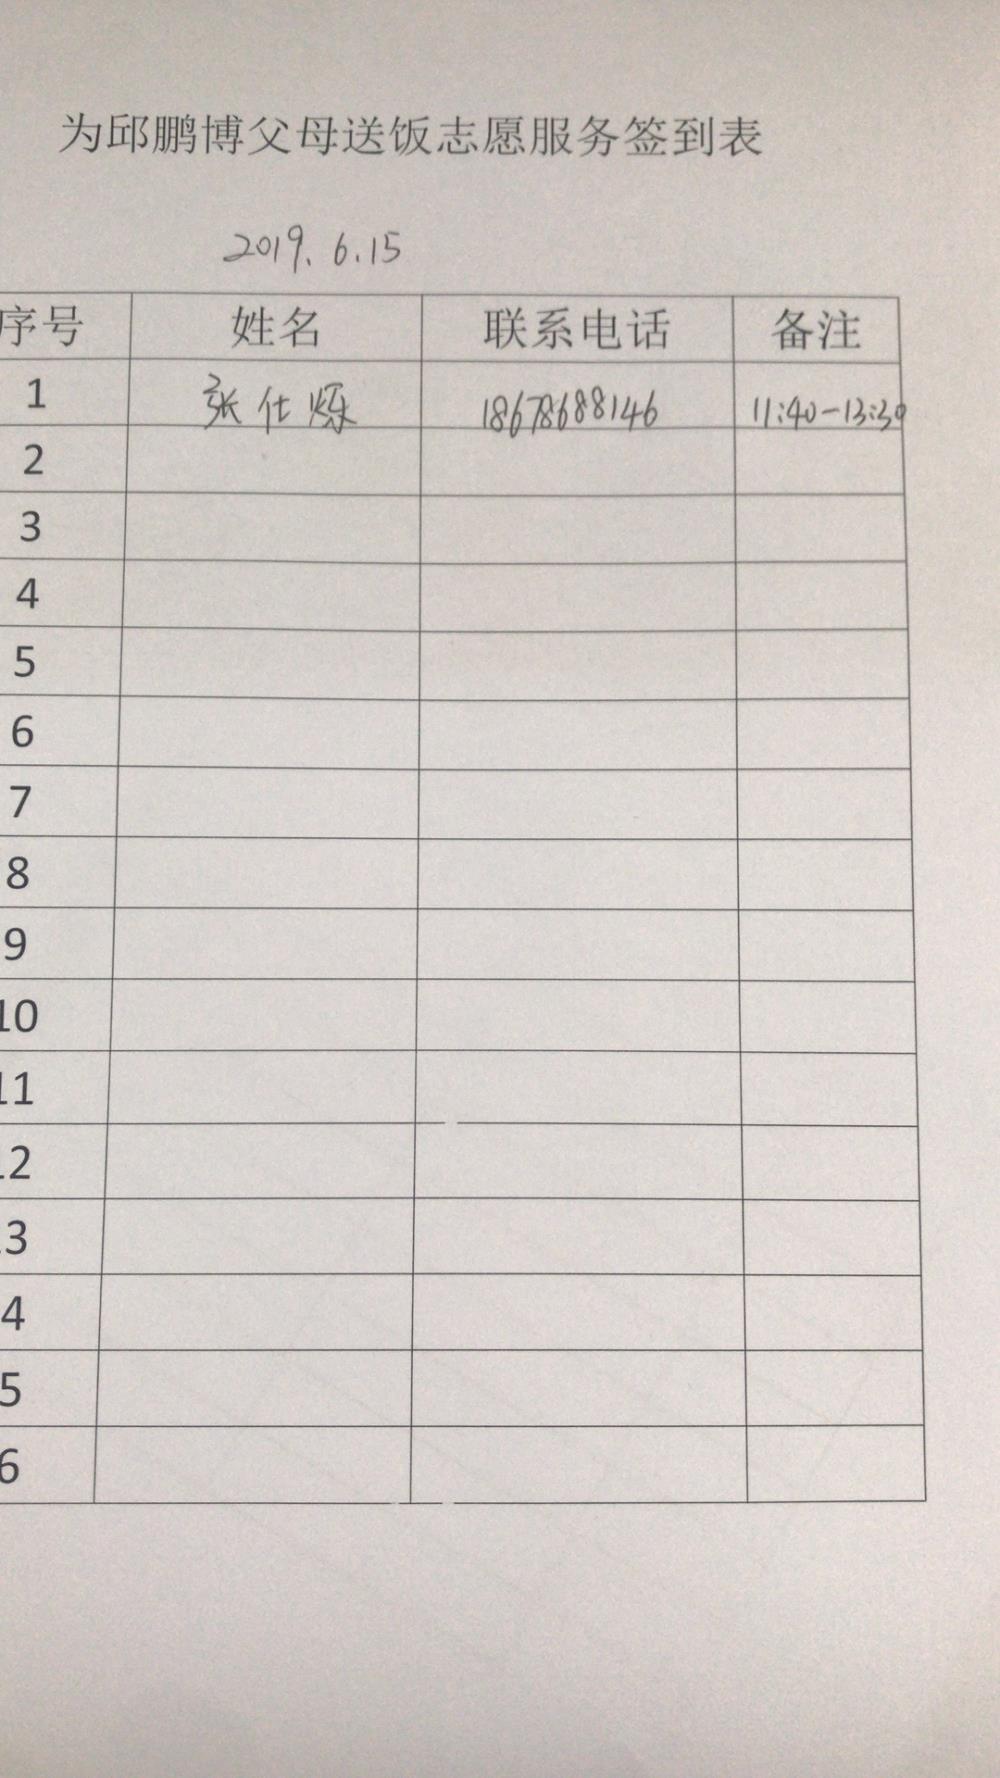 为邱鹏博父母送饭志愿服务签到表
2019.6.15
序号 姓名 联系电话 备注
1 张仕烁 18678688146 11:40-13:30
2
3
4
5
6
7
8
9
10
11
12
13
14
15
16